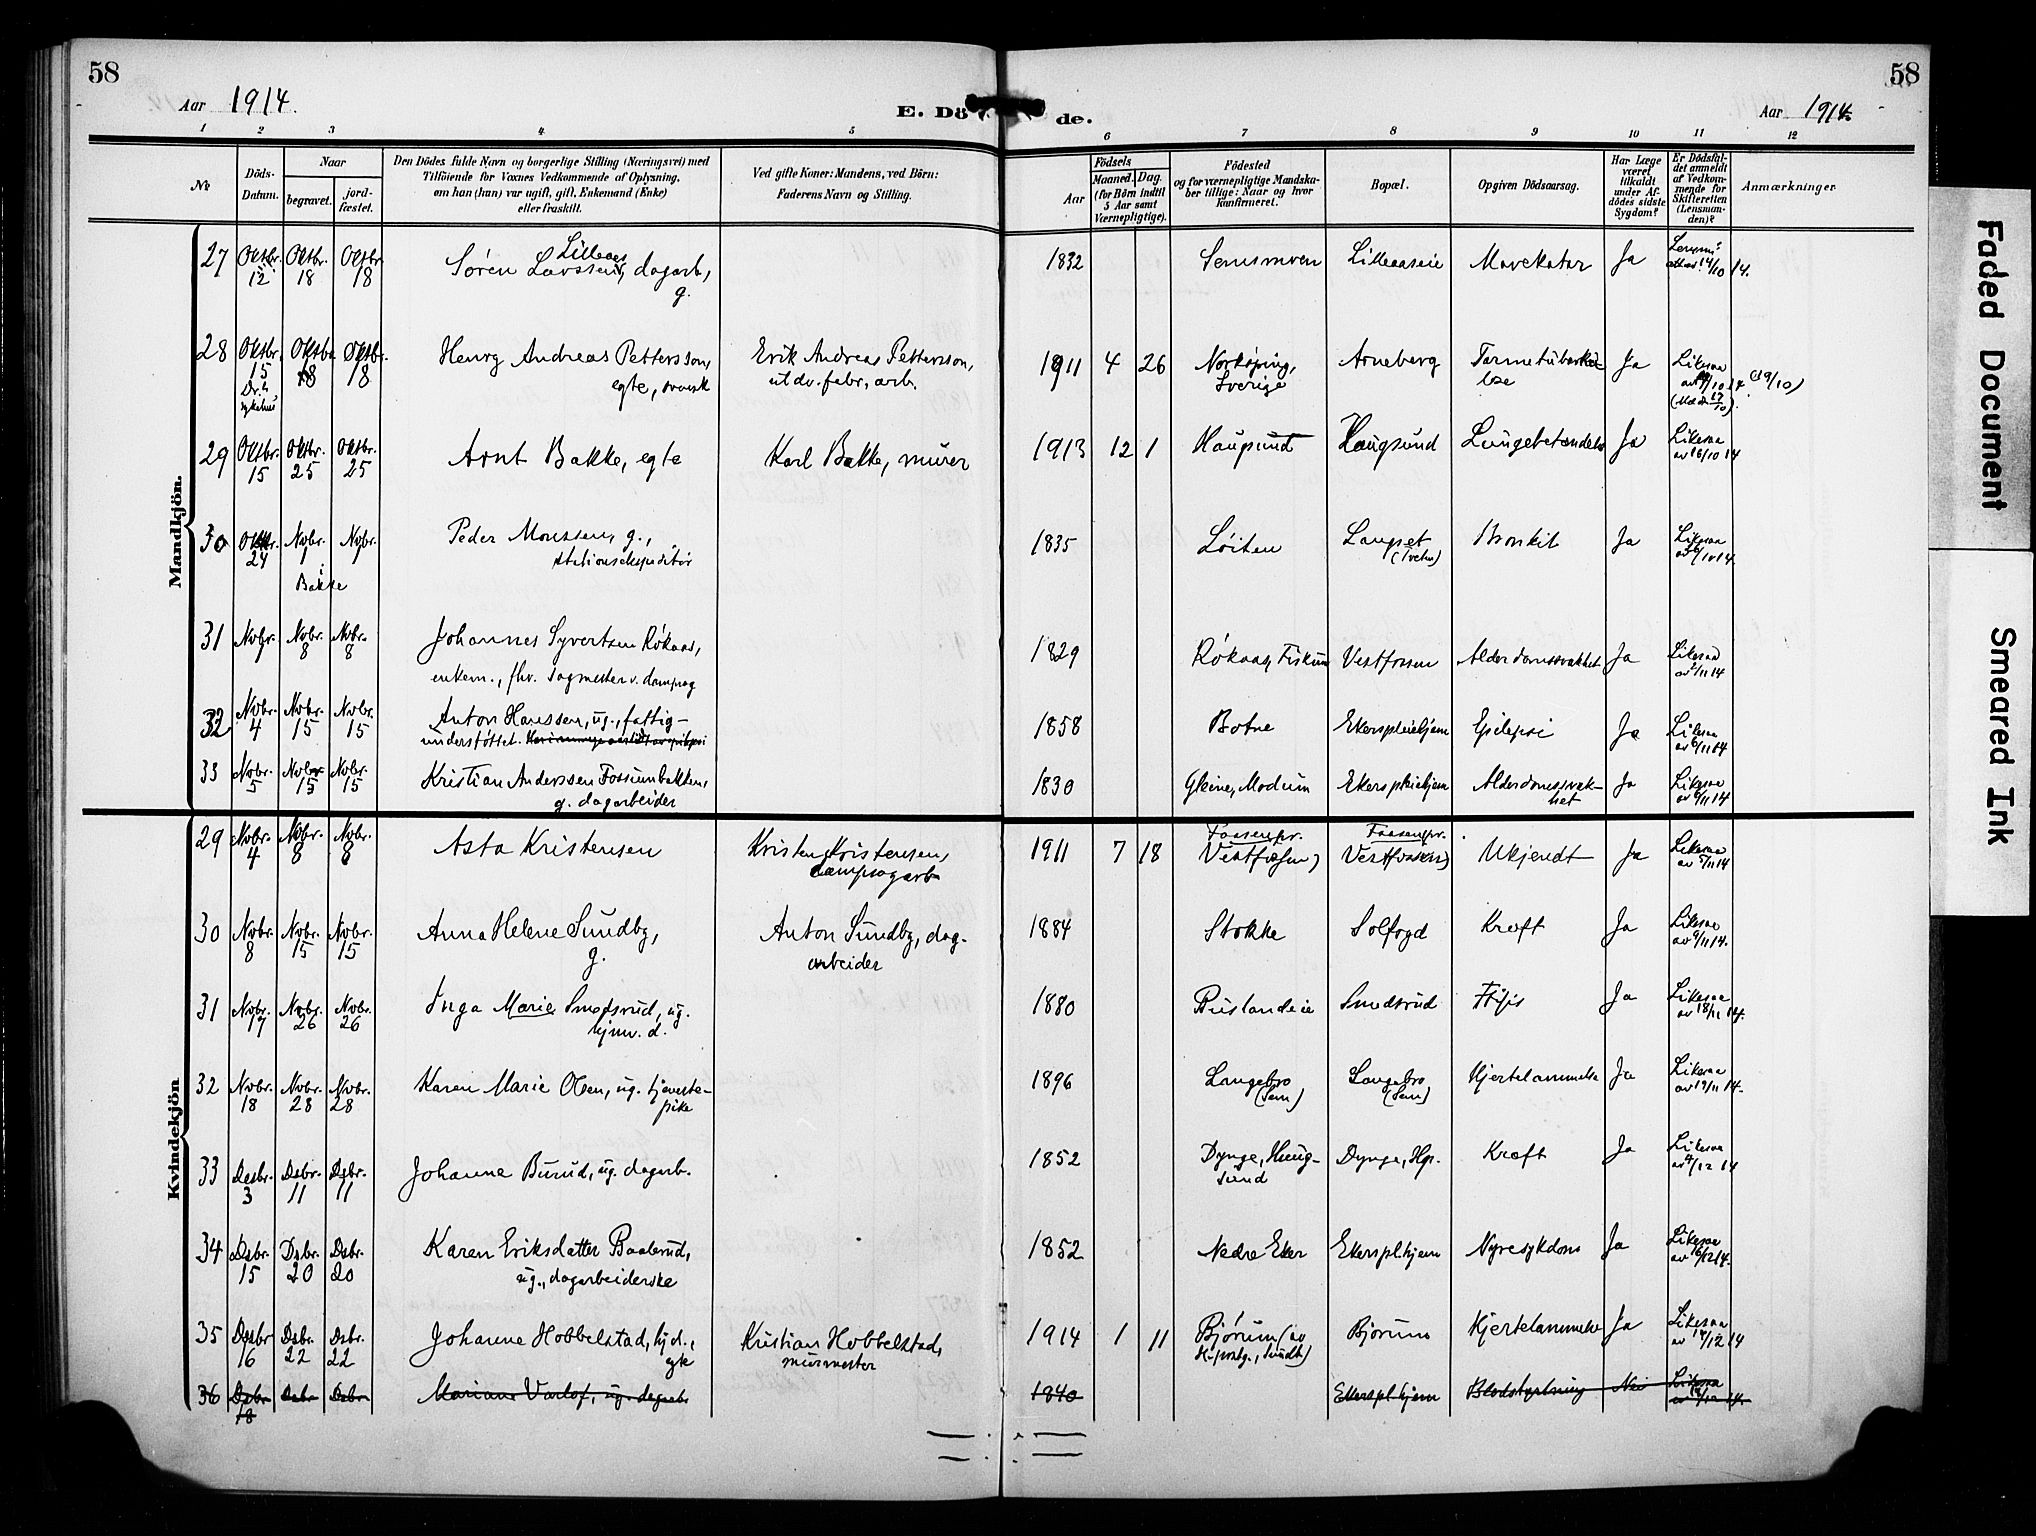 58
58
Aar 1914.
E. Dö de.
Aar 1914.
1 2 3 4 5 6 7 8 9 10 11 12
No
Döds-
Datum.
Naar
begravet.
jord-
fæstet.
Den Dödes fulde Navn og borgerlige Stilling (Næringsvei) med
Tilföiende for Voxnes Vedkommende af Oplysning,
om han (hun) var ugift, gift, Enkemand (Enke)
eller fraskilt.
Ved gifte Koner: Mandens, ved Börn:
Faderens Navn og Stilling.
Födsels
Aar
Maaned. Dag.
(for Börn indtil
5 Aar samt
Værnepligtige).
Födested
og for værnepligtige Mandska-
ber tillige: Naar og hvor
konfirmeret.
Bopæl.
Opgiven Dödsaarsag.
Har Læge
været
tilkaldt
under Af-
dödes sidste
Sygdom?
Er Dödsfal-
det anmeldt
af Vedkom-
mende for
Skifteretten
(Lensman-
den)?
Anmærkninger
Mandkjön.
27 Oktbr. 12 Oktbr. 18 Oktbr. 18 Søren Larssen Lilleaas, dagarb., g. 1832 Semsmoen Lilleaaseie Mavekatar Ja 14/10 14.
28 Oktbr. 15 Oktbr. 18 Oktbr. 18 Henry Andreas Pettersson, egte, svensk Erik Andreas Pettersson, utdv. fabr. arb. 1911 4 26 Norköping, Sverige Arneberg Ja Likesaa (19/10)
29 Oktbr. 15 Oktbr. 25 Oktbr. 25 Arnt Bakke, egte Karl Bakke, murer 1913 12 1 Haugsund Haugsund Lungebetændelse Ja Likesaa av 16/10 14
30 Oktbr. 24 Novbr. 1 Novbr. 1 i Bakke Peder Monssen, g., stationsekspeditør 1835 Løiten Langset (Tveten) Bronkit Ja Likesaa
31 Novbr. 1 Novbr. 8 Novbr. 8 Johannes Syvertsen Røkaas, enkem., fhv. sagmester v. dampsag 1829 Røkaas, Fiskum Vestfossen Alderdomssvakhet Ja Likesaa av 2/11 14
32 Novbr. 4 Novbr. 15 Novbr. 15 Anton Hanssen, ug., fattig-
understøttet. 1858 Botne Ekerspleiehjem Epilepsi Ja Likesaa av 6/11 14
33 Novbr. 5 Novbr. 15 Novbr. 15 Kristian Anderssen Fossumbakken, g. dagarbeider 1830 Gleine, Modum Ekerspleiehjem Alderdomssvak-
het Ja Likesaa av 6/11 14
Kvindekjön
29 Novbr. 4 Novbr. 8 Novbr. 8 Asta Kristensen Kristen Kristensen, dampsagarb. 1911 7 18 Vestfossen) Vestfossen) Ukjendt Ja Likesaa av 5/11 14
30 Novbr. 8 Novbr. 15 Novbr. 15 Anna Helene Sundby, g. Anton Sundby, dag-
arbeider 1884 Stokke Solfogd Kræft Ja Likesaa av 9/11 14.
31 Novbr. 17 Novbr. 26 Novbr. 26 Inga Marie Smedsrud, ug. hjmv. d. 1880 Smedsrud Ftisis Ja Likesaa av 18/11 14.
32 Novbr. 18 Novbr. 28 Novbr. 28 Karen Marie Olsen, ug. tjeneste-
pike 1896 Langebro (Sem) Langebro (Sem) Hjertelammelse Ja Likesaa av 19/11 14.
33 Desbr. 3 Desbr. 11 Desbr. 11 Johanne Burud, ug. dagarb. 1852 Dynge, Haug-
sund Dynge, Hgs. Kræft Ja Likesaa av 4/12 14
34 Desbr. 15 Desbr. 20 Desbr. 20 Karen Eriksdatter Baalerud, ug., dagarbeiderske 1852 Nedre Eker Ekerspl.hjem Nyresykdom Ja Likesaa av 16/12 14.
35 Desbr. 16 Desbr. 22 Desbr. 22 Johanne Hobbelstad, hj.d., egte Kristian Hobbelstad, murmester 1914 1 11 Bjørum Bjørum Hjertelammelse Ja Likesaa av 17/12 14
36 Desbr. 18 Desbr. Desbr. Mariane Varlo, ug. dagarb. 1840 Ekerspl.hjem Blodstyrtning Nei Likesaa
Faded Document
Smeared Ink